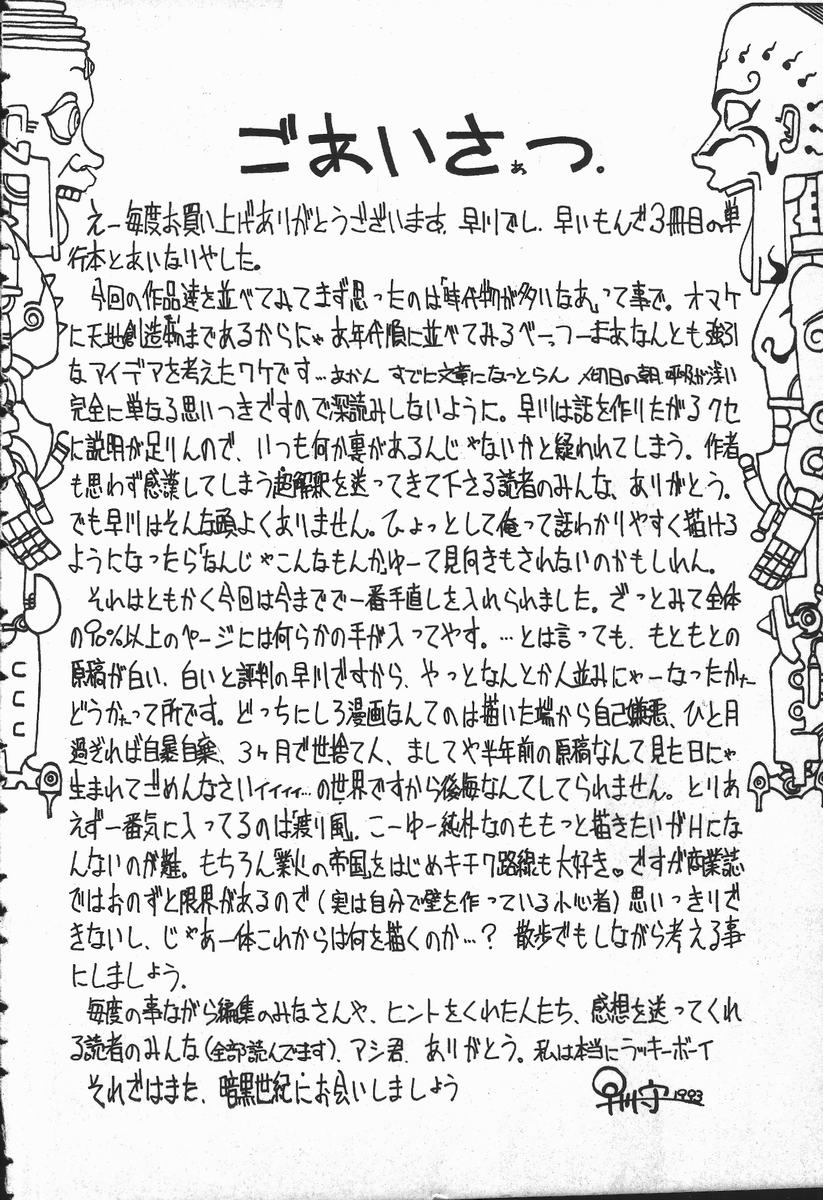 ごあいさぁつ.
えー毎度お買い上げありがとうございます。早川でし。早いもんで3冊目の単
行本とあいなりやした。
今回の作品達を並べてみてまず思ったのは「時代物が多いなあ」って事で。オマケ
に天地創造まであるからにゃお年代順に並べてみるべーっつーまあなんとも強引
なアイデアを考えたワケです…あかん すでに文章になっとらん 〆切日の朝 呼吸が浅い
完全に単なる思いつきですので深読みしないように。早川は話を作りたがるクセ
に説明が足りんので、いつも何か裏があるんじゃないかと疑われてしまう。作者
も思わず感嘆してしまう超解釈を送ってきて下さる読者のみんな、ありがとう。
でも早川はそんな頭よくありません。ひょっとして俺って話わかりやすく描ける
ようになったら「なんじゃこんなもんか」ゆーて見向きもされないのかもしれん。
それはともかく今回は今までで一番手直しを入れられました。ざっとみて全体
の90%以上のページには何らかの手が入ってやす。…とは言っても、もともとの
原稿が白い、白いと評判の早川ですから、やっとなんとか人並みにゃーなったかなー
どうかなって所です。どっちにしろ漫画なんてのは描いた端から自己嫌悪、ひと月
過ぎれば自暴自棄、3ヶ月で世捨て人、ましてや半年前の原稿なんて見た日にゃ
生まれてごめんなさいィィィィ…の世界ですから後悔なんてしてられません。とりあ
えず一番気に入ってるのは「渡り風」。こーゆー純朴なのももっと描きたいがHにな
んないのが難。もちろん「業火の帝国」をはじめキチク路線も大好き♥ですが商業誌
ではおのずと限界があるので(実は自分で壁を作っている小心者)思いっきりで
きないし、じゃあ一体これからは何を描くのか…? 散歩でもしながら考える事
にしましょう。
毎度の事ながら編集のみなさんや、ヒントをくれた人たち、感想を送ってくれ
る読者のみんな(全部読んでます)、アシ君、ありがとう。私は本当にラッキーボーイ
それではまた、暗黒世紀にお会いしましょう
早川守 1993